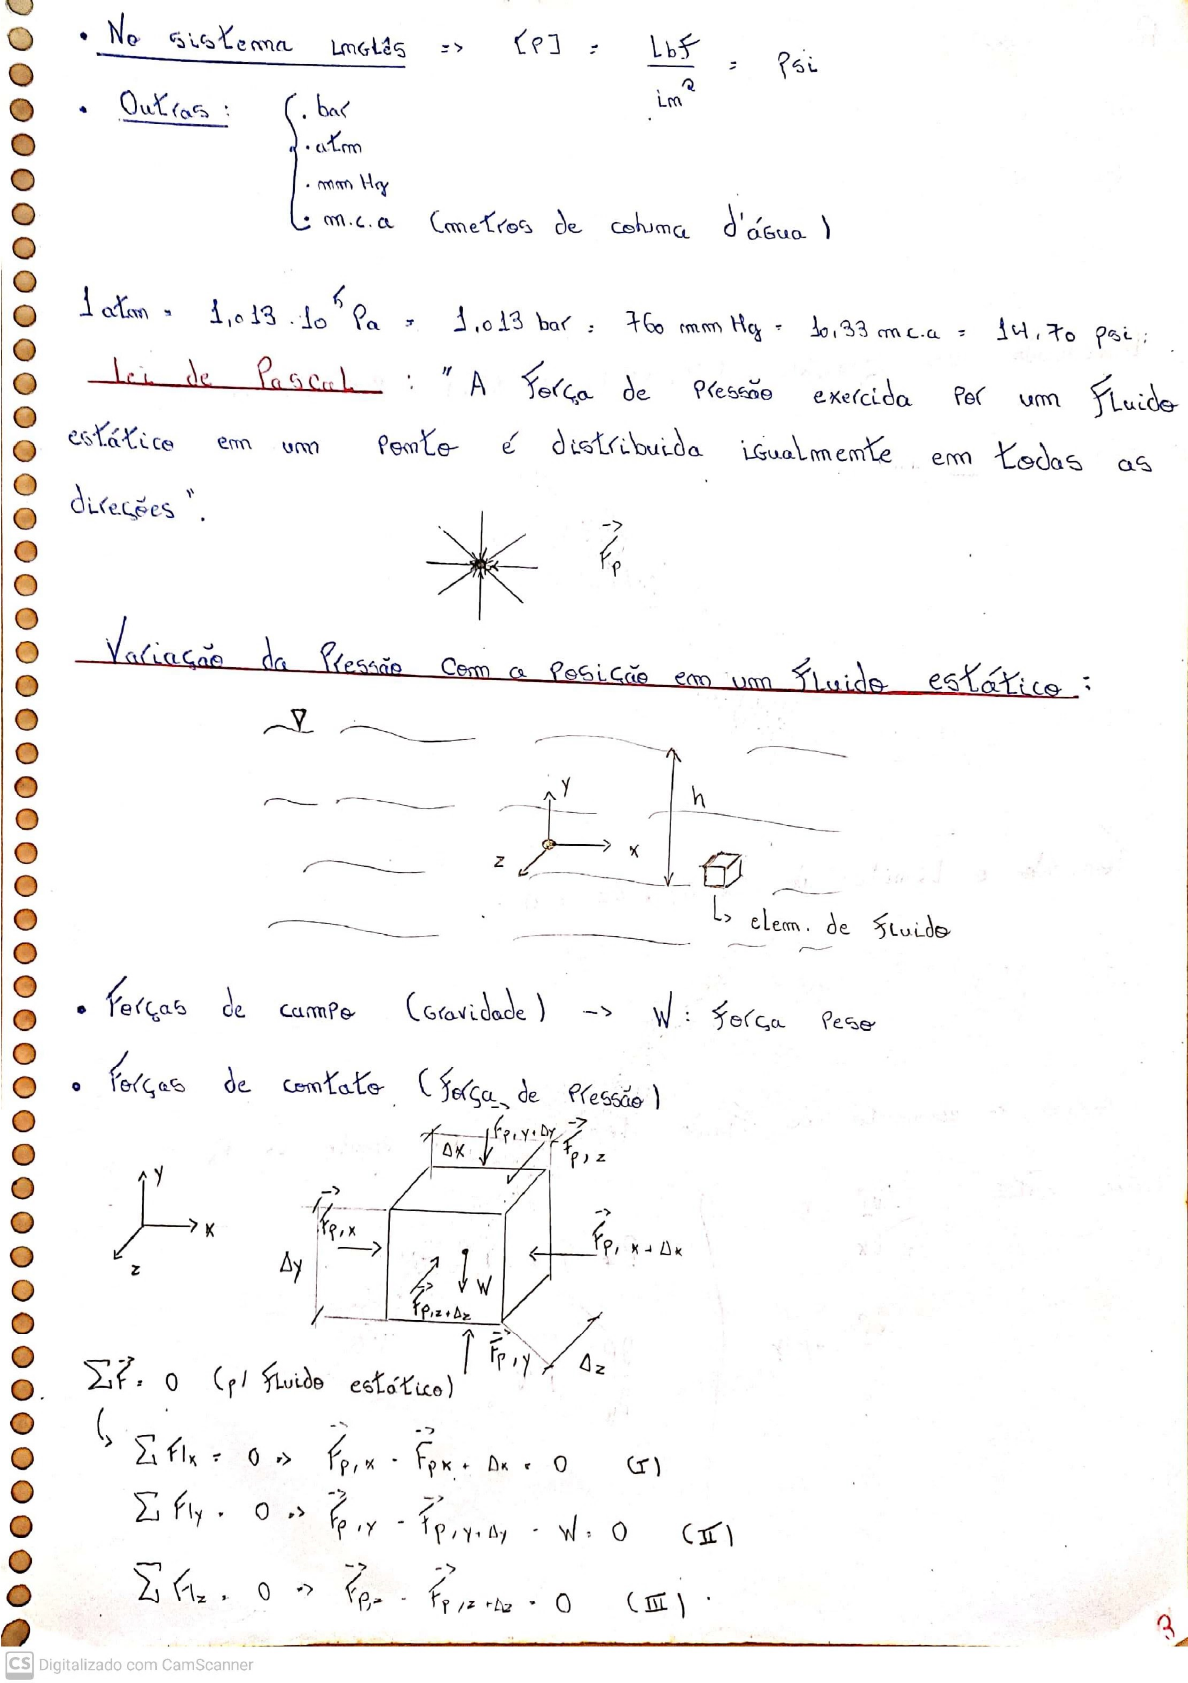 • No sistema inglês => [P] = Lbf / in² = Psi
• Outras: { . bar
. atm
. mm Hg
. m.c.a (metros de coluna d'água)
1 atm = 1,013 . 10⁵ Pa = 1,013 bar = 760 mm Hg = 10,33 m.c.a = 14,70 psi.
Lei de Pascal : "A Força de Pressão exercida por um Fluido
estático em um Ponto é distribuida igualmente em todas as
direções".
F⃗p
Variação da Pressão com a posição em um fluido estático:
y
h
x
z
↳ elem. de Fluido
• Forças de campo (Gravidade) -> W: Força Peso
• Forças de contato (Força de Pressão)
Δx F⃗p,y+Δy F⃗p,z
y
x
z
F⃗p,x
F⃗p, x+Δx
Δy
W
F⃗p,z+Δz
F⃗p,y
Δz
ΣF⃗ = 0 (p/ Fluido estático)
↳ ΣF|x = 0 => F⃗p,x - F⃗px+Δx = 0 (I)
ΣF|y = 0 => F⃗p,y - F⃗p,y+Δy - W = 0 (II)
ΣF|z = 0 => F⃗p,z - F⃗p,z+Δz = 0 (III).
3
CS Digitalizado com CamScanner